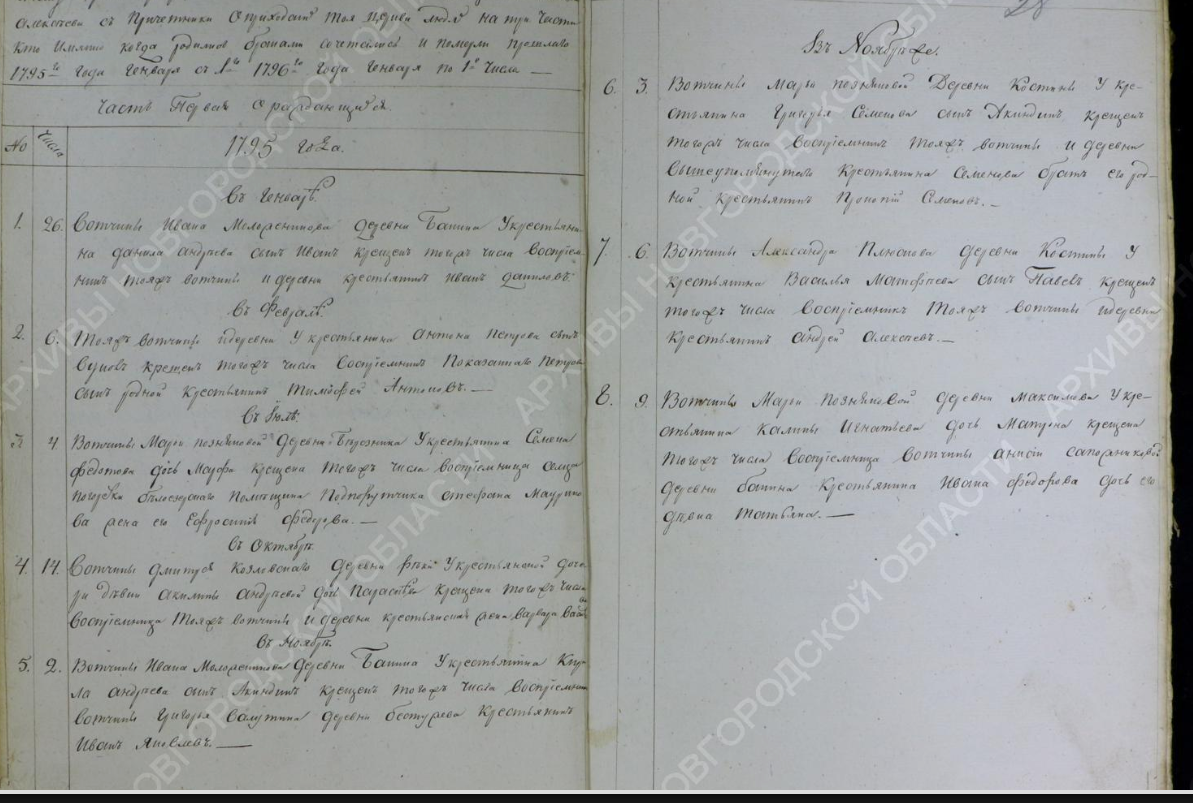 Алексѣева съ Причетники Оприходскихъ тоя церкви людѣ на три Части
Кто Имянно когда родился бракомъ сочетались и померли прошлаго
1795го Года Генваря съ 1го 1796го Года Генваря по 1е Числа —
Часть Первая О раждающихся
№ Числа 1795 Года.
Въ Генварѣ
1. 26. Вотчины Ивана деревни Банина Укрестьяни-
на данила андрѣева сынъ Иванъ крещенъ тогожъ числа Воспрiем-
никъ тояжъ вотчины и деревни крестьянинъ Иванъ даниловъ.
Въ Февралѣ.
2. 6. Тояжъ вотчины идеревни Укрестьянина антона петрова сынъ
крещенъ тогожъ числа Воспрiемникъ Показаннаго Петрова
сынъ родной Крестьянинъ Тимофей Антоновъ. —
Въ Iюлѣ.
3. 4. Вотчины Марьи позняковой Деревни Укрестьянина Семена
федотова дочь Марфа крещена Тогожъ числа воспрiемница Сельца
Помещика Подпорутчика стефана
ва жена его Ефросинья Федорова. —
Въ Октябрѣ.
4. 14. Вотчины дмитрея Козловскаго Деревни Укрестьянской доче-
ри дѣвки акилины андрѣевой дочь Парасковья Крещена тогожъ Числа
Воспрiемница Тояжъ вотчины и деревни крестьянская жена Варвара
Въ Ноябрѣ.
5. 2. Вотчины Ивана Деревни Банина Укрестьянина Кири-
ла андрѣева сынъ Акиндинъ крещенъ тогожъ Числа Воспрiемникъ
вотчины Григорья деревни бестужева Крестьянинъ
Иванъ Яковлевъ. —
28
Въ Ноябрѣ
6. 3. Вотчины Марьи позняковой Деревни Костины У кре-
стьянина Григорья Семенова сынъ Акиндинъ крещенъ
тогожъ числа Воспрiемникъ Тояжъ вотчины и деревни
Вышеупомянутаго Крестьянина Семенова братъ его род-
ной крестьянинъ Прокопiй Семеновъ. —
7. 6. Вотчины Александра деревни Костины У
крестьянина Василья Матфѣева сынъ Павелъ крещенъ
тогожъ числа Воспрiемникъ Тояжъ вотчины идеревни
Крестьянинъ андрей алексѣевъ. —
8. 9. Вотчины Марьи Позняковой деревни Максимова Укре-
стьянина Калины Игнатьева дочь Матрона крещена
Тогожъ числа Воспрiемница Вотчины анны сапожниковой
деревни банина Крестьянина Ивана федорова дочь его
дѣвка Татьяна. —
АРХИВЫ НОВГОРОДСКОЙ ОБЛАСТИ